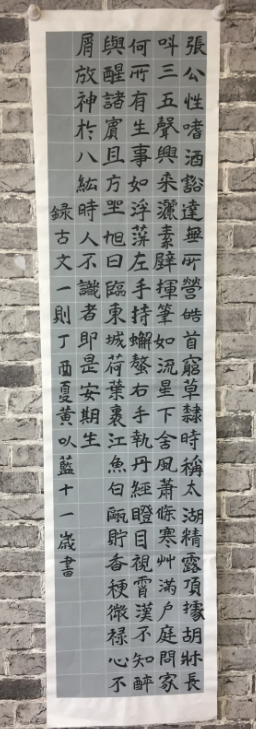 張公性嗜酒豁達無所營皓首窮草隸時稱太湖精露頂據胡牀長
呌三五聲興来灑素壁揮筆如流星下舍風蕭條寒艸滿户庭問家
何所有生事如浮萍左手持蠏螯右手執丹經瞪目視霄漢不知醉
與醒諸賓且方坐旭日臨東城荷葉裹江魚白甌貯香梗微禄心不
屑放神於八紘時人不識者即是安期生
録古文一則丁酉夏黄以藍十一歲書